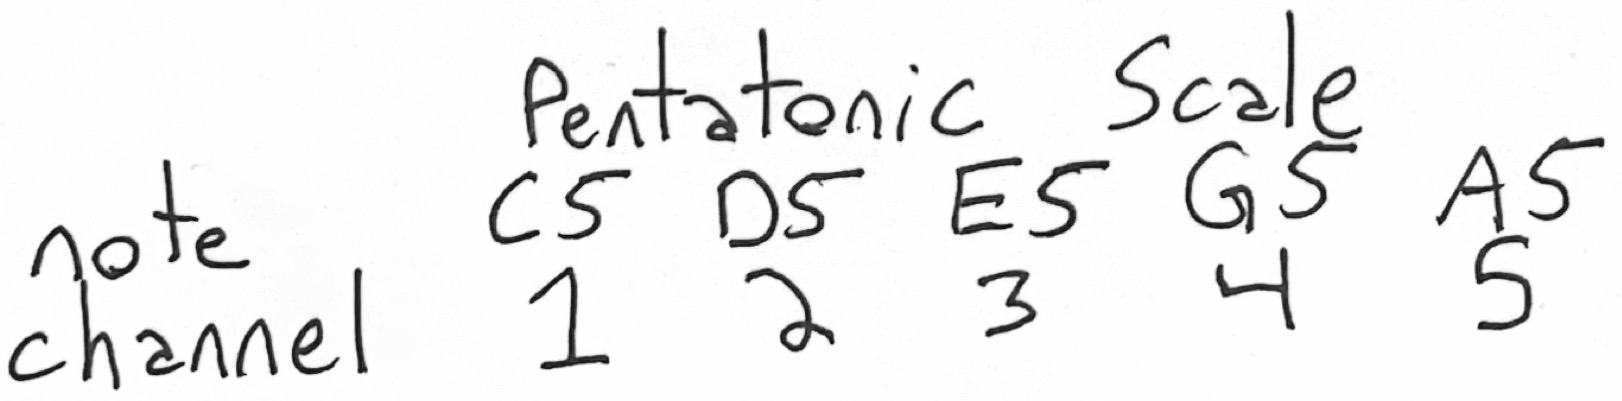 Pentatonic Scale
note C5 D5 E5 G5 A5
channel 1 2 3 4 5